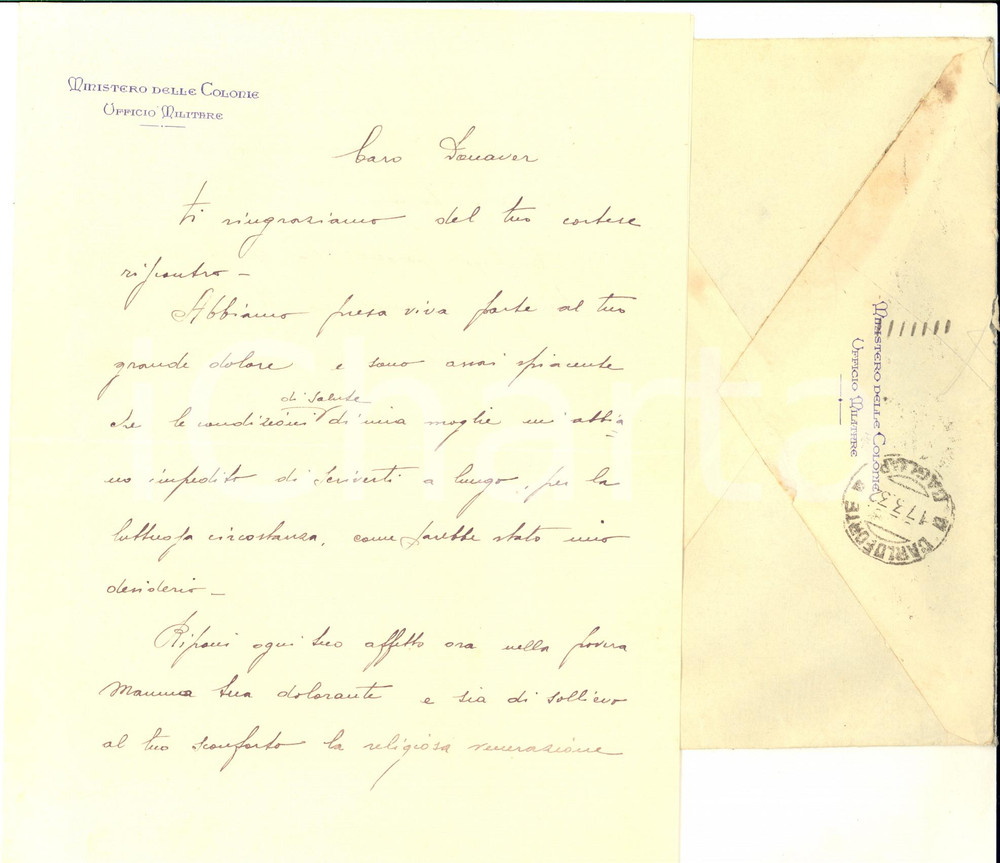 MINISTERO DELLE COLONIE
UFFICIO MILITARE
Caro Donaver
ti ringraziamo del tuo cortese
riscontro –
Abbiamo presa viva parte al tuo
grande dolore e sono assai spiacente
di salute
che le condizioni di mia moglie mi abbia
no impedito di scriverti a lungo, per la
luttuosa circostanza, come sarebbe stato mio
desiderio –
Riponi ogni tuo affetto ora nella povera
Mamma tua dolorante e sia di sollievo
al tuo sconforto la religiosa venerazione
iCharta
MINISTERO DELLE COLONIE
UFFICIO MILITARE
CARLOFORTE
17.3.3